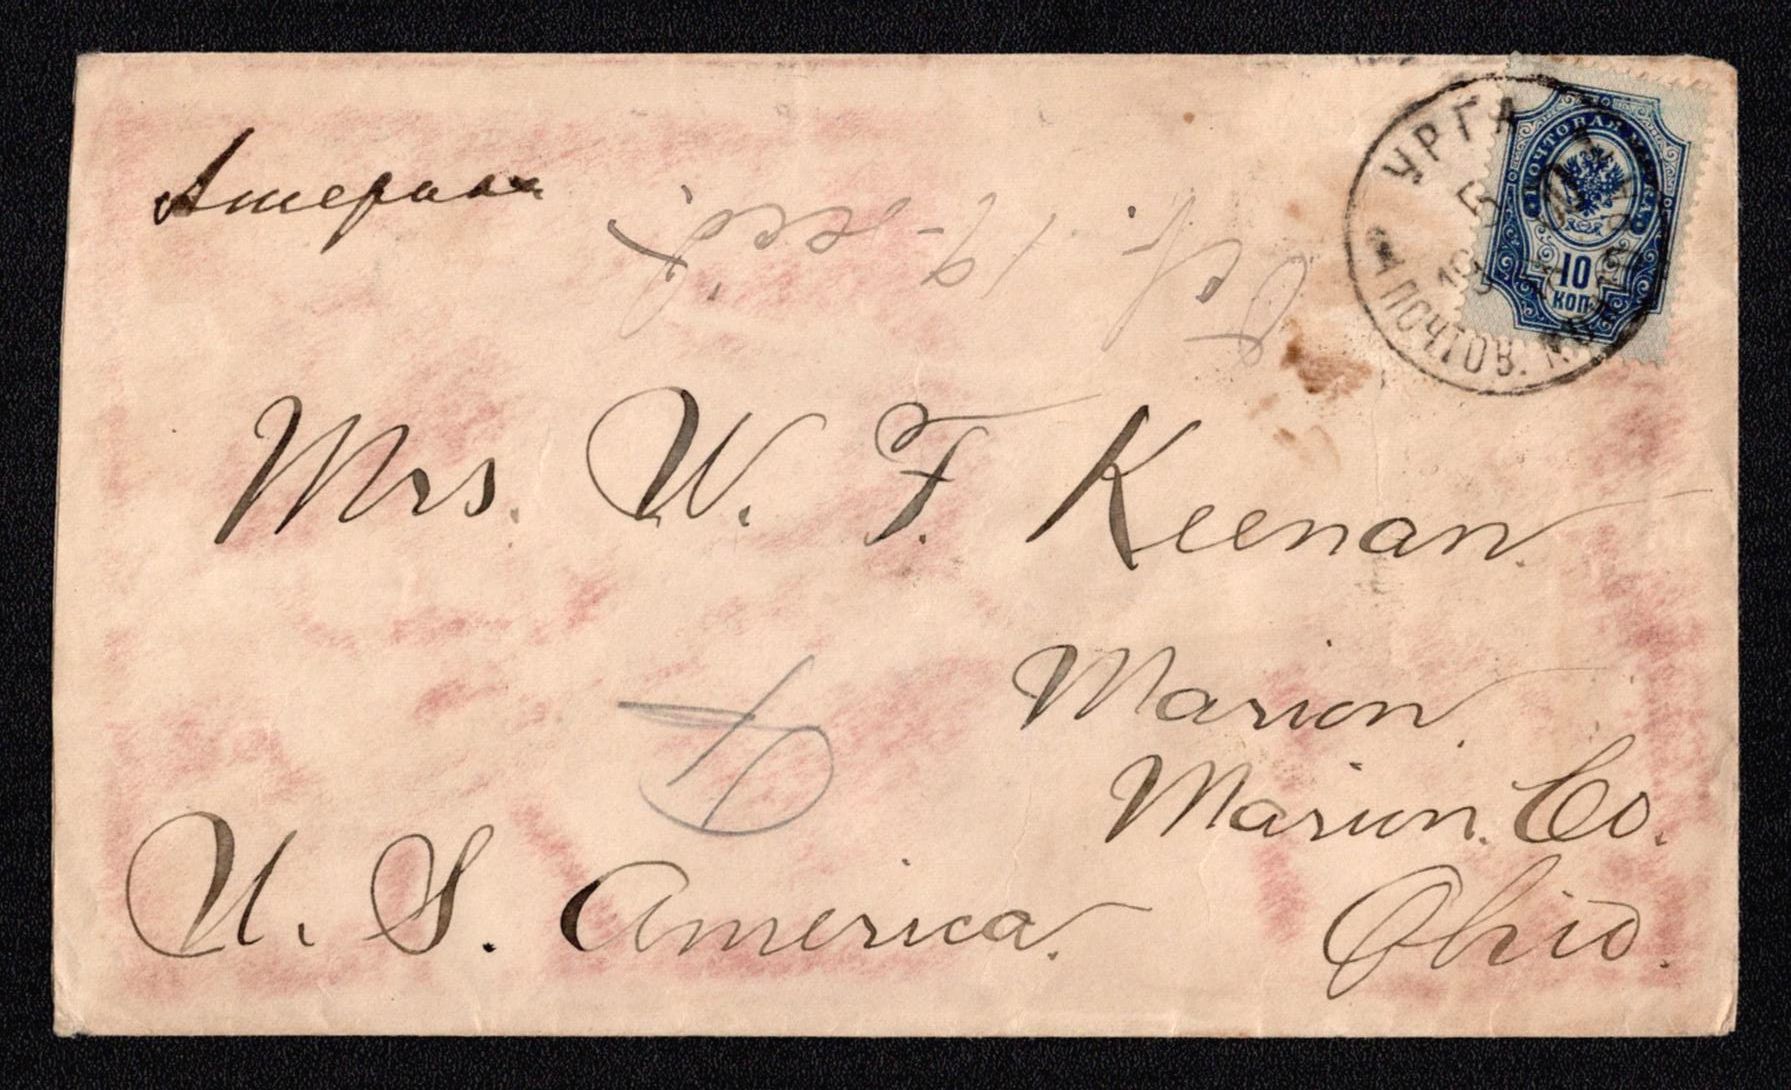 Америка
УРГА
ПОЧТОВ.
ПОЧТОВАЯ МАРКА
10
КОП.
Mrs. W. F. Keenan.
Marion.
Marion. Co.
Ohio.
U. S. America.